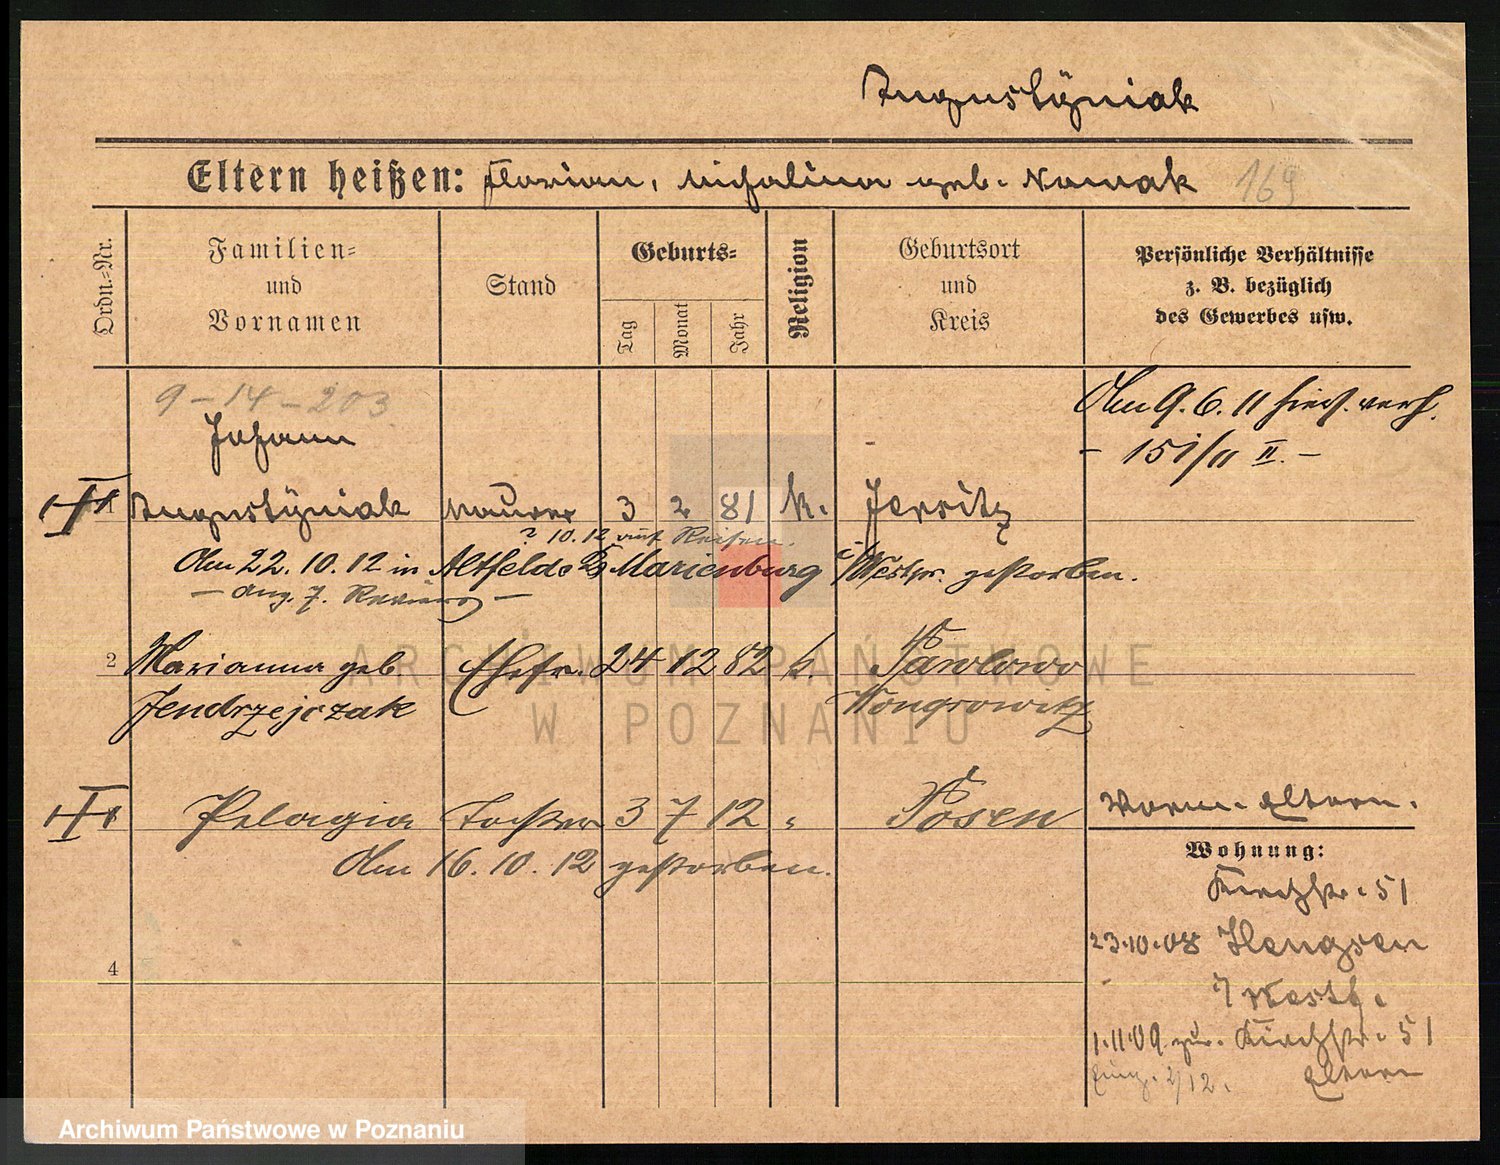 Augustÿniak
Eltern heißen: Florian, Michalina geb. Nowak 169
Ordn.-Nr.
Familien- und Vornamen
Stand
Geburts-
Tag
Monat
Jahr
Religion
Geburtsort und Kreis
Persönliche Verhältnisse
z. B. bezüglich
des Gewerbes usw.
9-14-203
Am 9. 6. 11 hies. verh.
- 151/11 II. -
Johann
1 Augustÿniak Maurer 3 2 81 k. Jersitz
? 10.12 auf Reisen.
Am 22. 10. 12 in Altfelde Marienburg i/Westpr. gestorben.
2 Marianna geb Ehefr. 24 12 82 k. Pawlowo
Jendrzejczak Wongrowitz
Pelagia Tochter 3 7 12 " Posen
Am 16. 10. 12 gestorben.
Vorm. Eltern.
Wohnung:
Kirchstr. 51
23.10.08 Hengsen
i/Westf.
4
1.11.09 zur. Kirchstr. 51
2/12. Eltern
ARCHIWUM PAŃSTWOWE
W POZNANIU
Archiwum Państwowe w Poznaniu